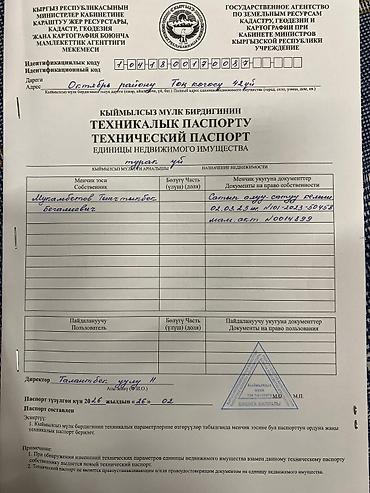 КЫРГЫЗ РЕСПУБЛИКАСЫНЫН
МИНИСТРЛЕР КАБИНЕТИНЕ
КАРАШТУУ ЖЕР РЕСУРСТАРЫ,
КАДАСТР, ГЕОДЕЗИЯ
ЖАНА КАРТОГРАФИЯ БОЮНЧА
МАМЛЕКЕТТИК АГЕНТТИГИ
МЕКЕМЕСИ
ГОСУДАРСТВЕННОЕ АГЕНТСТВО
ПО ЗЕМЕЛЬНЫМ РЕСУРСАМ
КАДАСТРУ, ГЕОДЕЗИИ И
КАРТОГРАФИИ ПРИ
КАБИНЕТЕ МИНИСТРОВ
КЫРГЫЗСКОЙ РЕСПУБЛИКИ
УЧРЕЖДЕНИЕ
Идентификациялык коду
Идентификационный код
Дареги
Адрес
Октябрь району Тоң көчөсү 42уб
КЫЙМЫЛСЫЗ МҮЛК БИРДИГИНИН
ТЕХНИКАЛЫК ПАСПОРТУ
ТЕХНИЧЕСКИЙ ПАСПОРТ
ЕДИНИЦЫ НЕДВИЖИМОГО ИМУЩЕСТВА
турак үй
КЫЙМЫЛСЫЗ МҮЛКТҮН АРНАЛЫШЫ НАЗНАЧЕНИЕ НЕДВИЖИМОСТИ
Менчик ээси
Собственник
Бөлүгү Часть
(үлүш) (доля)
Менчик укугуна документтер
Документы на право собственности
Мукамбетов
Бегалиевич
Сатып алуу-сатуу келиш
02.03.23ж. №101-2023-50458
мам.акт №0014899
Пайдалануучу
Пользователь
Бөлүгү Часть
(үлүш) (доля)
Пайдалануу укугуна документтер
Документы на право пользования
Директор Талантбек уулу Н
(Ф.И.О.)
М.О. М.П.
КЫЙМЫЛСЫЗ
Паспорт түзүлгөн күнү 2026 жылдын «26» 02
Паспорт составлен
Эскертүү:
1. Кыймылсыз мүлк бирдигинин техникалык параметрлерине өзгөрүүлөр табылганда менчик ээсине бул паспорттун ордуна жаңы
техникалык паспорт берилет.
Примечание:
1. При обнаружении изменений технических параметров единицы недвижимого имущества взамен данному техническому паспорту
собственнику выдается новый технический паспорт.
2. Технический паспорт не является правоустанавливающим и/или правоудостоверяющим документом на единицу недвижимого имущества.